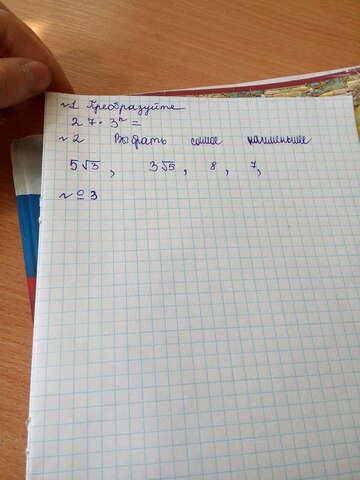 №1 Преобразуйте
27 · 3ⁿ =
№2 Выбрать самое наименьшее
5√3, 3√5, 8, 7,
№3